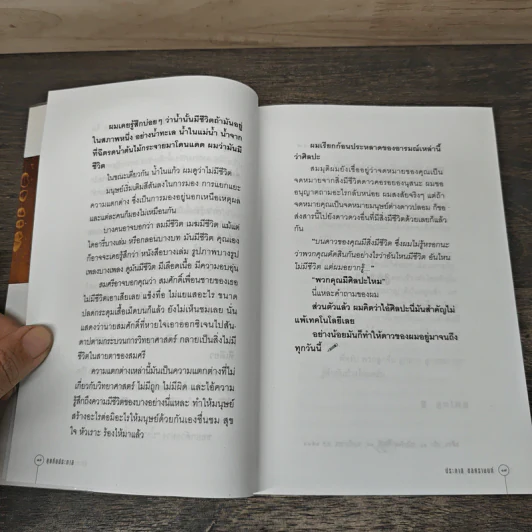 ผมเคยรู้สึกบ่อยๆ ว่าน้ำนั้นมีชีวิตถ้ามันอยู่
ในสภาพหนึ่ง อย่างน้ำทะเล น้ำในแม่น้ำ น้ำจาก
ที่ฉีดรดน้ำต้นไม้กระจายมาโดนแดด ผมว่ามันมี
ชีวิต
ในขณะเดียวกัน น้ำในแก้ว ผมดูว่าไม่มีชีวิต
มนุษย์เริ่มเติมสีสันลงในการมอง การแยกแยะ
ความแตกต่าง ซึ่งเป็นการมองอยู่นอกเหนือเหตุผล
และแต่ละคนก็มองไม่เหมือนกัน
บางคนอาจบอกว่า ลมมีชีวิต เมฆมีชีวิต แม้แต่
ไดอารี่บางเล่ม หรือกลอนบางบท มันมีชีวิต คุณเอง
ก็อาจจะเคยรู้สึกว่า หนังสือบางเล่ม รูปภาพบางรูป
เพลงบางเพลง ดูมันมีชีวิต มีเลือดเนื้อ มีความอบอุ่น
สมศรีอาจบอกคุณว่า สมศักดิ์เพื่อนชายของเธอ
ไม่มีชีวิตเอาเสียเลย แข็งทื่อ ไม่แยแสอะไร ขนาด
ปลดกระดุมเสื้อเม็ดบนก็แล้ว ยังไม่เห็นขยมเลย นั่น
แสดงว่านายสมศักดิ์ที่หายใจเอาออกซิเจนไปสัน
ดาปตามกระบวนการวิทยาศาสตร์ กลายเป็นสิ่งไม่มี
ชีวิตในสายตาของสมศรี
ความแตกต่างเหล่านี้มันเป็นความแตกต่างที่ไม่
เกี่ยวกับวิทยาศาสตร์ ไม่มีถูก ไม่มีผิด และไอ้ความ
รู้สึกถึงความมีชีวิตของบางอย่างนี่แหละ ทำให้มนุษย์
สร้างอะไรต่อมิอะไรให้มนุษย์ด้วยกันเองชื่นชม สุข
ใจ หัวเราะ ร้องไห้มาแล้ว
ผมเรียกก้อนประหลาดของอารมณ์เหล่านี้
ว่าศิลปะ
สมมุติผมยังเชื่ออยู่ว่าจดหมายของคุณเป็น
จดหมายจากสิ่งมีชีวิตดาวดวงอื่น ผมขอ
อนุญาตถามอะไรกลับหน่อย ผมสงสัยจริงๆ แต่ถ้า
จดหมายคุณเป็นจดหมายมนุษย์ต่างดาวปลอม ก็ขอ
ส่งสารนี้ไปยังดาวดวงอื่นที่มีสิ่งมีชีวิตด้วยเลยก็แล้ว
กัน
"บนดาวของคุณมีสิ่งมีชีวิต ซึ่งผมไม่รู้หรอกนะ
ว่าพวกคุณตัดสินกันอย่างไรว่าอันไหนมีชีวิต อันไหน
ไม่มีชีวิต แต่ผมอยากรู้..."
"พวกคุณมีศิลปะไหม"
นี่แหละคำถามของผม
ส่วนตัวแล้ว ผมคิดว่าไอ้ศิลปะนี่มันสำคัญไม่
แพ้เทคโนโลยีเลย
อย่างน้อยมันก็ทำให้ดาวของผมอยู่มาจนถึง
ทุกวันนี้